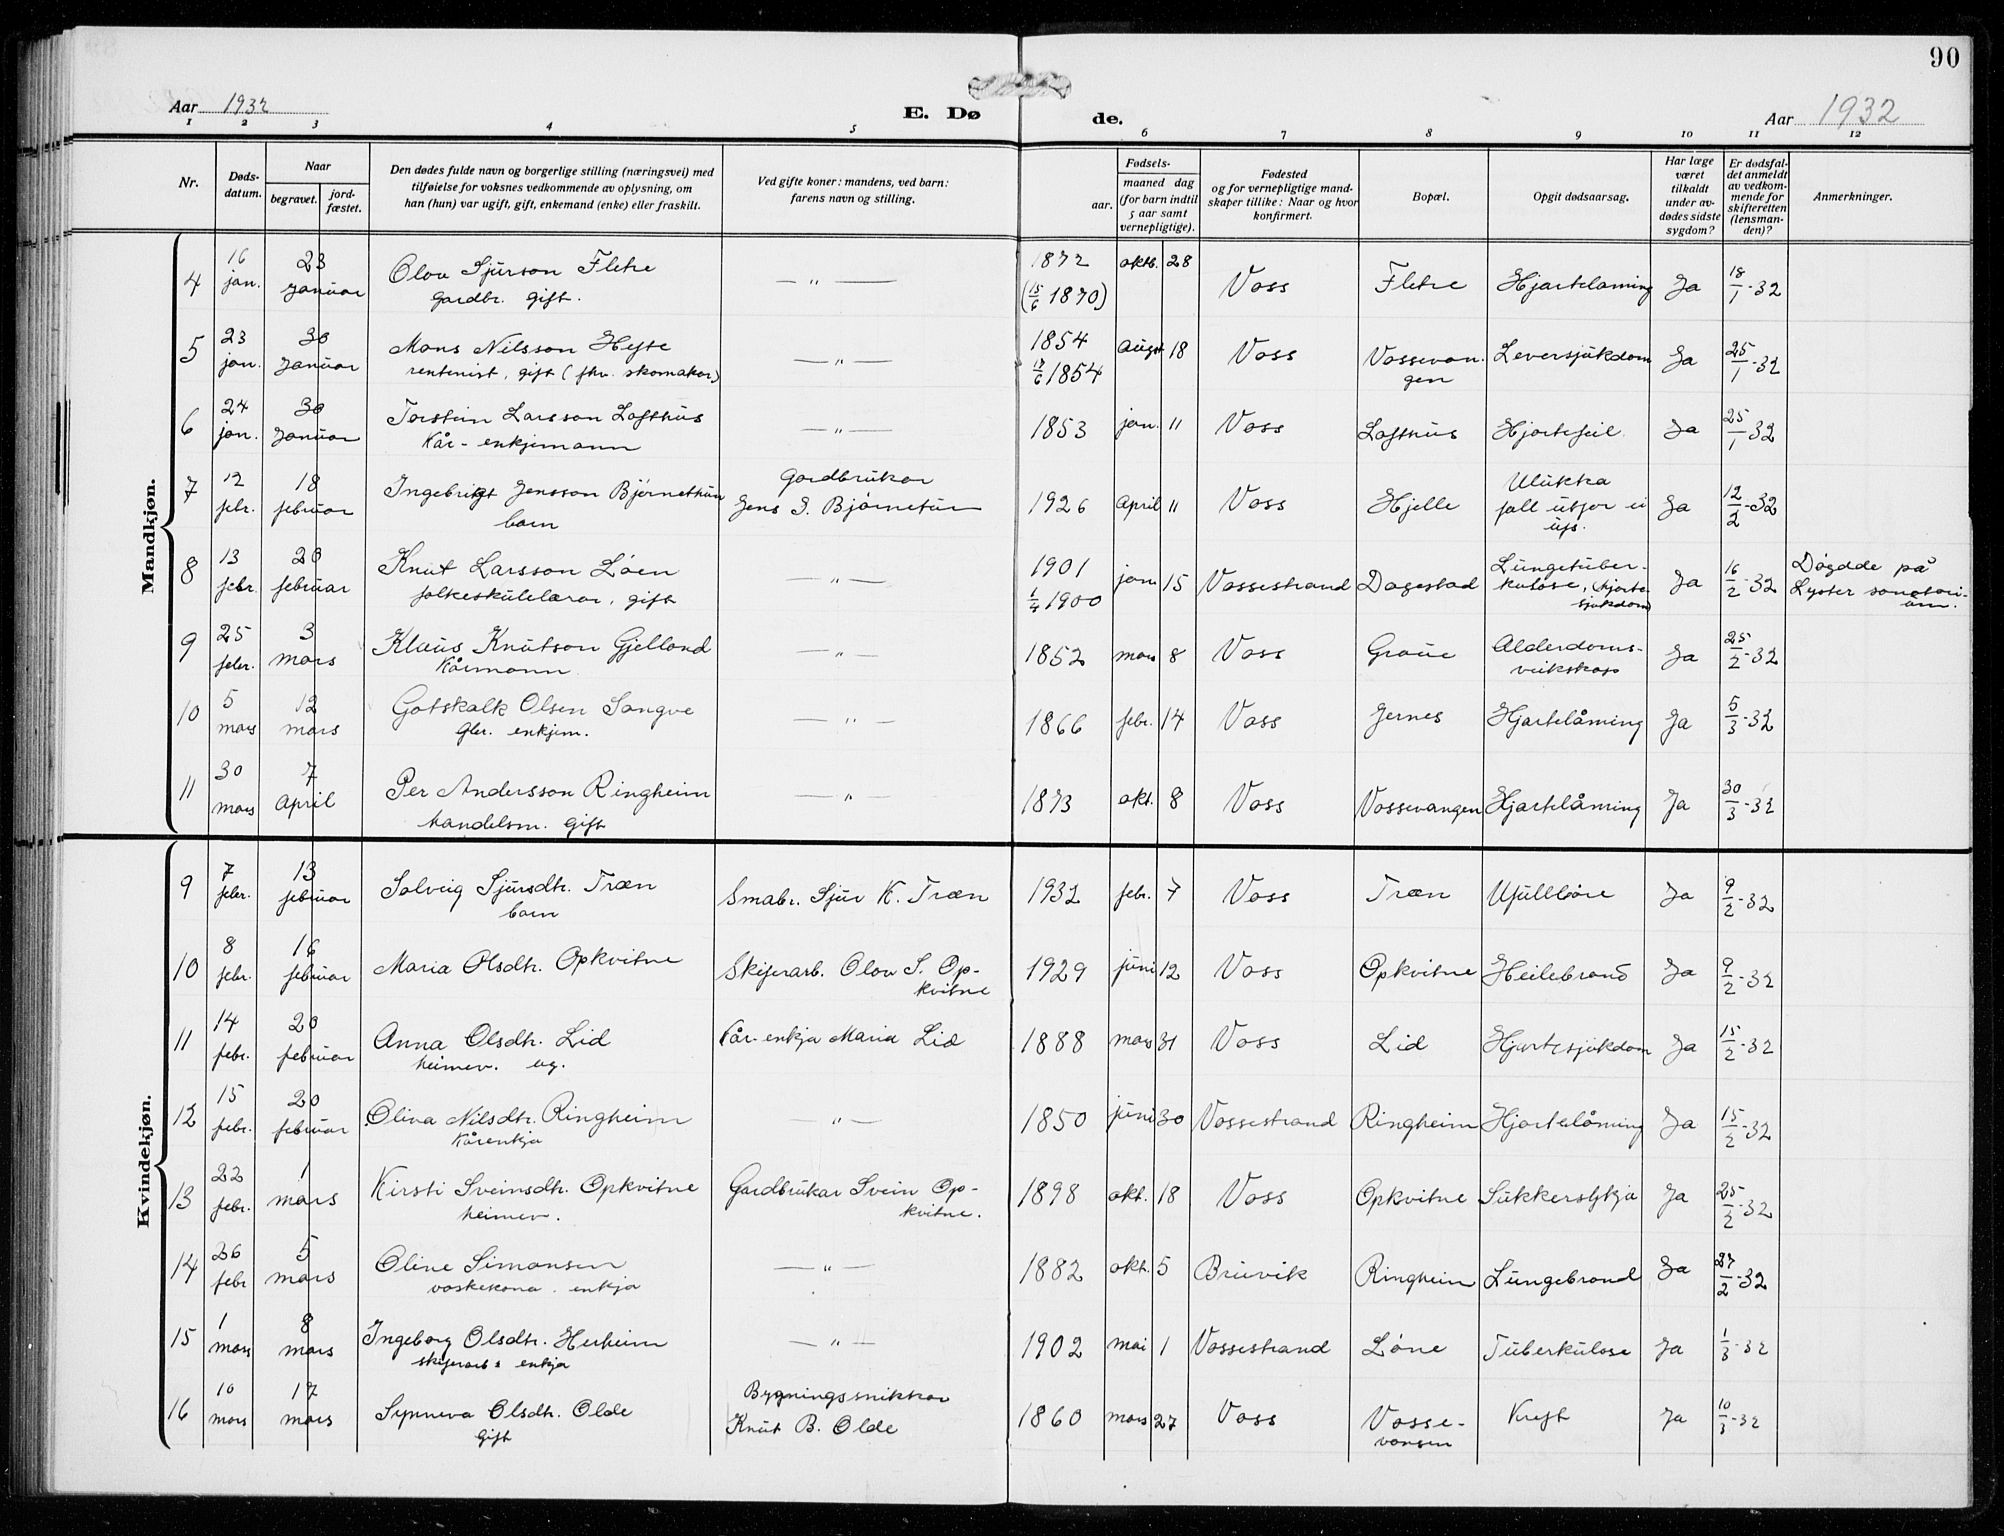 90
Aar 1932
E. Dø
de.
Aar 1932
1 2 3 4 5 6 7 8 9 10 11 12
Nr.
Døds-
datum.
Naar
begravet.
jord-
fæstet.
Den dødes fulde navn og borgerlige stilling (næringsvei) med
tilføielse for voksnes vedkommende av oplysning, om
han (hun) var ugift, gift, enkemand (enke) eller fraskilt.
Ved gifte koner: mandens, ved barn:
farens navn og stilling.
Fødsels-
aar.
maaned dag
(for barn indtil
5 aar samt
vernepligtige).
Fødested
og for vernepligtige mand-
skaper tillike: Naar og hvor
konfirmert.
Bopæl.
Opgit dødsaarsag.
Har læge
været
tilkaldt
under av-
dødes sidste
sygdom?
Er dødsfal-
det anmeldt
av vedkom-
mende for
skifteretten
(lensman-
den)?
Anmerkninger.
Mandkjøn.
4 16 jan. 23 Januar Olov Sjurson Fletre — " — 1872 oktb. 28 Voss Fletre Hjartelaming Ja 18/1-32
Gardbr. gift. (15/6 1870)
5 23 jan. 30 Januar Mons Nilsson Hefte — " — 1854 August 18 Voss Vossevan- Leversjukdom Ja 25/1-32
rentenist, gift (fhv. skomakar) 17/6 1854 gen
6 24 jan. 30 Januar Torstein Larsson Lofthus — " — 1853 jan. 11 Voss Lofthus Hjartefeil. Ja 25/1-32
Kår- enkjemann
7 12 febr. 18 februar Ingebrigt Jensson Bjørnethun Gardbrukar 1926 April 11 Voss Hjelle Ulukka Ja 12/2-32
barn Jens I. Bjørnetun fall utfor ei
ufs.
8 13 febr. 20 februar Knut Larsson Løen — " — 1901 jan 15 Vossestrand Dagestad Lungetuber- Ja 16/2-32 Døydde på
folkeskulelærar, gift 1/4 1900 kulose, (hjarte- Lyster sanatori-
sjukdom) um.
9 25 febr. 3 mars Klaus Knutson Gjelland — " — 1852 mars 8 Voss Graue Alderdoms- Ja 25/2-32
Kårmann veikskap
10 5 mars 12 mars Gotskalk Olsen Sangve — " — 1866 febr. 14 Voss Jernes Hjartelåming Ja 5/3-32
Gbr. enkjem.
11 30 mars 7 April Per Andersson Ringheim — " — 1873 okt. 8 Voss Vossevangen Hjartelåming Ja 30/3-32
Handelsm. gift
Kvindekjøn.
9 7 febr. 13 februar Solveig Sjursdtr. Træn Smabr. Sjur K. Træn 1932 febr. 7 Voss Træn Ufullbore Ja 9/2-32
barn
10 8 febr. 16 februar Maria Olsdtr. Opkvitne Skiferarb. Olov S. Op- 1929 juni 12 Voss Opkvitne Heilebrand Ja 9/2-32
kvitne
11 14 febr. 20 februar Anna Olsdtr. Lid Kår-enkja Maria Lid 1888 mars 31 Voss Lid Hjartesjukdom Ja 15/2-32
heimev. ug.
12 15 febr. 20 februar Olina Nilsdtr. Ringheim — " — 1850 juni 30 Vossestrand Ringheim Hjartelåming Ja 15/2-32
Kårenkja
13 22 febr. 1 mars Kirsti Sveinsdtr. Opkvitne Gardbrukar Svein Op- 1898 okt. 18 Voss Opkvitne Sukkersykja Ja 25/2-32
heimev. kvitne.
14 26 febr 5 mars Oline Simonsen — " — 1882 okt. 5 Bruvik Ringheim Lungebrand Ja 27/2-32
vaskekona. enkja
15 1 mars 8 mars Ingeborg Olsdtr. Herheim — " — 1902 mai 1 Vossestrand Løne Tuberkulose Ja 1/3-32
skiferarbs enkja
16 10 mars 17 mars Synneva Olsdtr. Olde Bygningssnikkar 1860 mars 27 Voss Vosse- Kreft Ja 10/3-32
Gift Knut B. Olde vangen